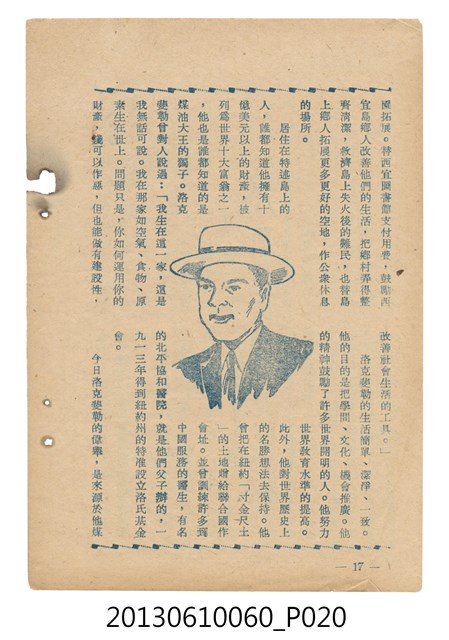 拓展。替西宜圖書館支付用費,鼓勵西
宜島鄉人改善他們的生活,把鄉村弄得整
齊清潔,救濟島上失火後的難民,也替島
上鄉人拓展更多更好的空地,作公衆休息
的場所。
居住在特遜島上的
人,誰都知道他擁有十
億美元以上的財產,被
列爲世界十大富翁之一
,他也是誰都知道的是
煤油大王的獨子。洛克
斐勒曾對人說過:「我生在這一家,這是
我無話可說。我在那家如空氣、食物、原
素生在世上。問題只是,你如何運用你的
財產,錢可以作惡,但也能做有建設性,
改善社會生活的工具。」
洛克斐勒的生活簡單、潔淨、一致。
他的目的是把學問、文化、機會推廣。他
的精神鼓勵了許多世界開明的人。他努力
世界教育水準的提高。
此外,他對世界歷史上
的名勝想法去保持。他
曾把在紐約「寸金尺土
」的土地贈給聯合國作
會址。並曾訓練許多到
中國服務的醫生,有名
的北平協和醫院,就是他們父子辦的,一
九一三年得到紐約州的特准設立洛氏基金
會。
今日洛克斐勒的偉業,是來源於他煤
— 17 —
20130610060_P020